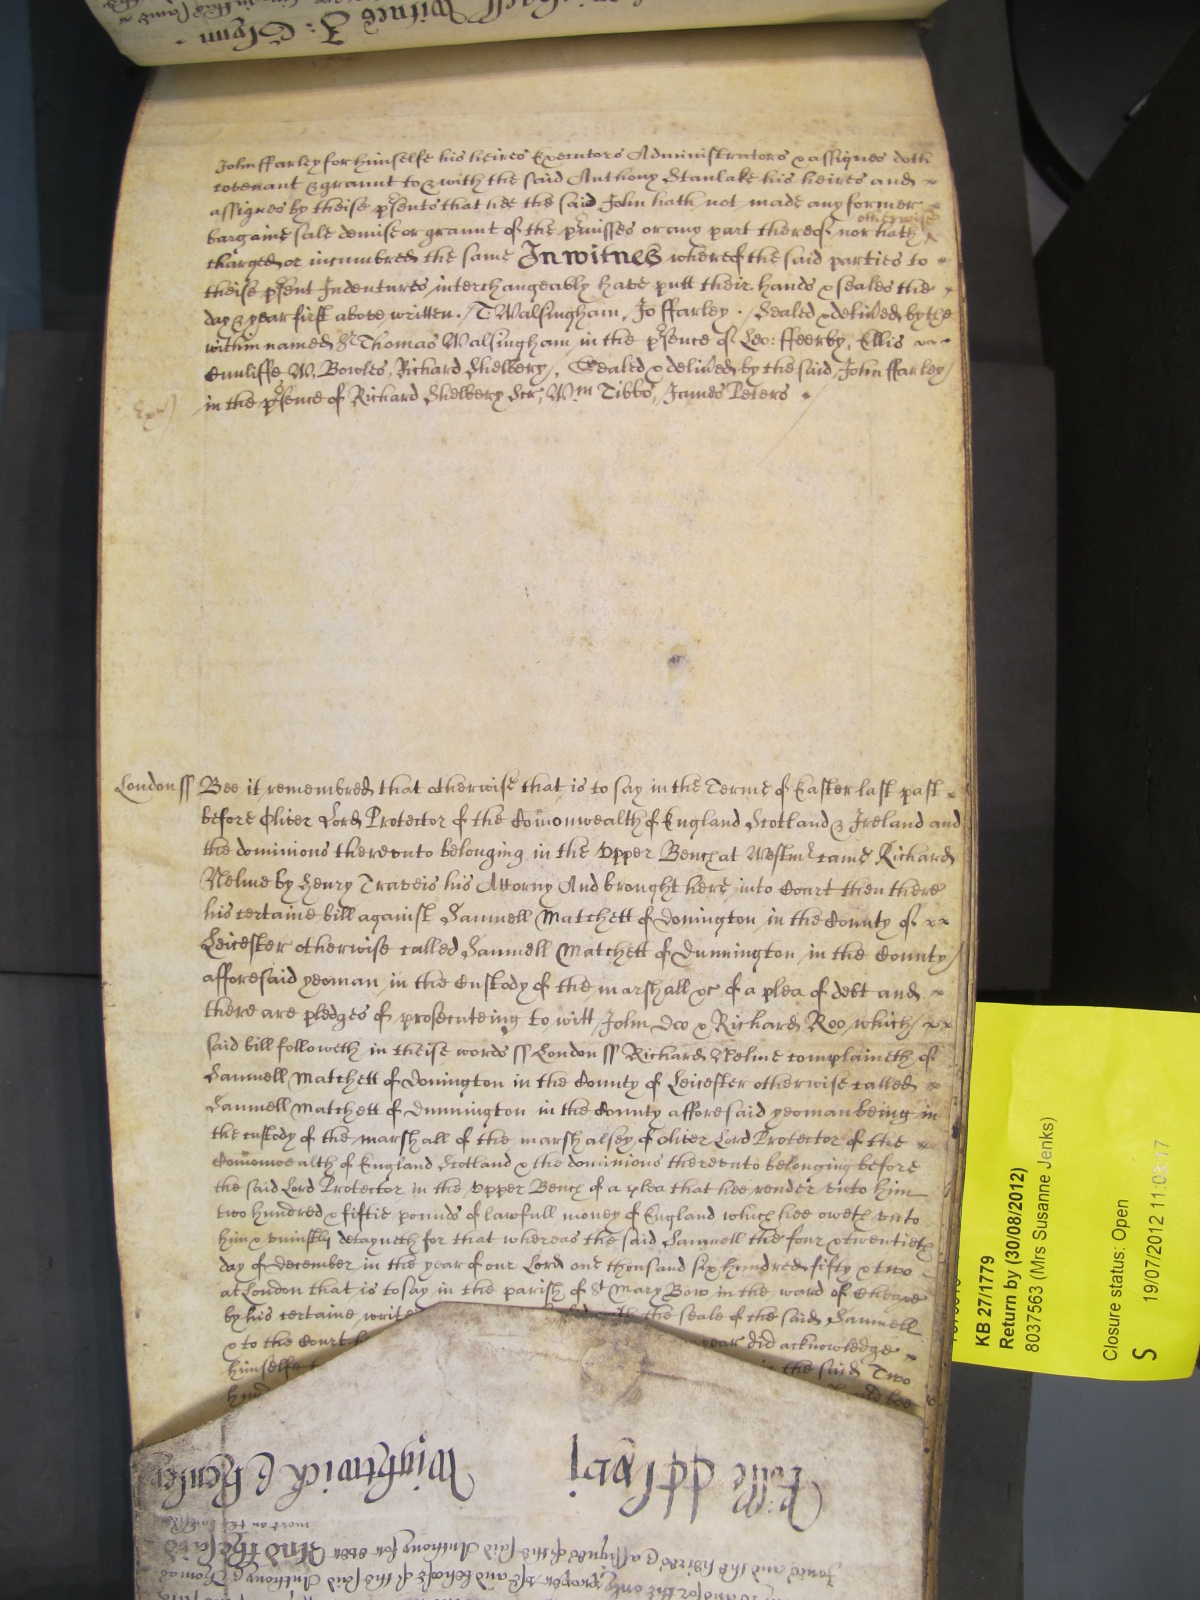 John ffarley for himselfe his heires Executors Administrators & assignes doth
covenant & graunt to & with the said Anthony Stanlake his heires and
assignes by theise p'sents that hee the said John hath not made any former
bargaine sale demise or graunt of the p'misses or any part thereof nor hath otherwise
charged or incumbred the same In witnes whereof the said parties to
theise p'sent Indentures interchangeably have putt their hands & seales the
day & year first above written. / T: Walsingham, Jo ffarley. Sealed & deliu'ed by the
within named Sr Thomas Walsingham in the p'sence of Leo: fferby, Ellis
Cunliffe W. Bowles, Richard Shelbery, Sealed & deliu'ed by the said John ffarley
in the p'sence of Richard Shelbery Scr, Wm Tibbs, James Peters
London ss Bee it remembred that otherwise that is to say in the Terme of Easter last past
before Oliver Lord Protector of the Comonwealth of England Scotland & Ireland and
the dominions thereunto belonging in the Upper Bench at Westmr came Richard
Nelme by Henry Traveis his Attorny And brought here into Court then there
his certaine bill against Samuell Matchett of Donington in the County of
Leicester otherwise called Samuell Matchett of Dunnington in the County
afforesaid yeoman in the Custody of the marshall &c of a plea of debt and
there are pledges of prosecuteing to witt John Doo & Richard Roo which
said bill followeth in theise words ss London ss Richard Nelme complaineth of
Samuell Matchett of Donington in the County of Leicester otherwise called
Samuell Matchett of Dunnington in the County afforesaid yeoman being in
the custody of the marshall of the marshalsey of Oliver Lord Protector of the
Comonwealth of England Scotland & the dominions thereunto belonging before
the said Lord Protector in the Upper Bench of a plea that hee render unto him
two hundred & fiftie pounds of lawfull money of England which hee oweth unto
him & uniustly detayneth for that whereas the said Samuell the four & twentieth
day of december in the year of our Lord one thousand six hundred fifty & two
at London that is to say in the parish of St Mary Bow in the ward of Cheape
by his certaine write the seale of the said Samuell
& to the Court year did acknowledge
himselfe the said Two
hund
Wightwick &
KB 27/1779
Return by (30/08/2012)
8037563 (Mrs Susanne Jenks)
Closure status: Open
S 19/07/2012 11:03:17